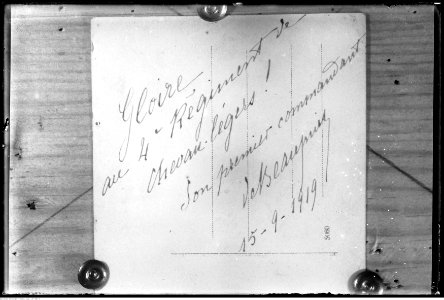 Gloire
au 4e Régiment de
Chevau-légers !
Son premier commandant
de Beaupuis
15-9-1919